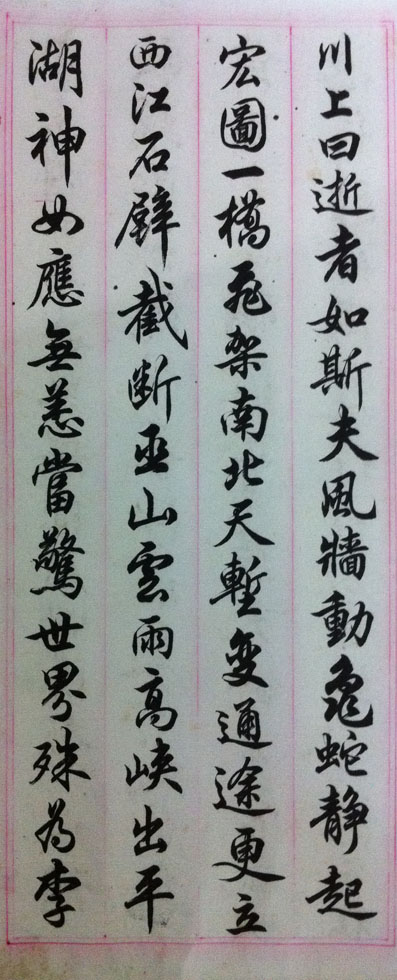 川上曰逝者如斯夫風牆動龜蛇静起
宏圖一橋飛架南北天塹變通途更立
西江石壁截断巫山雲雨高峡出平
湖神女應無恙當驚世界殊為李